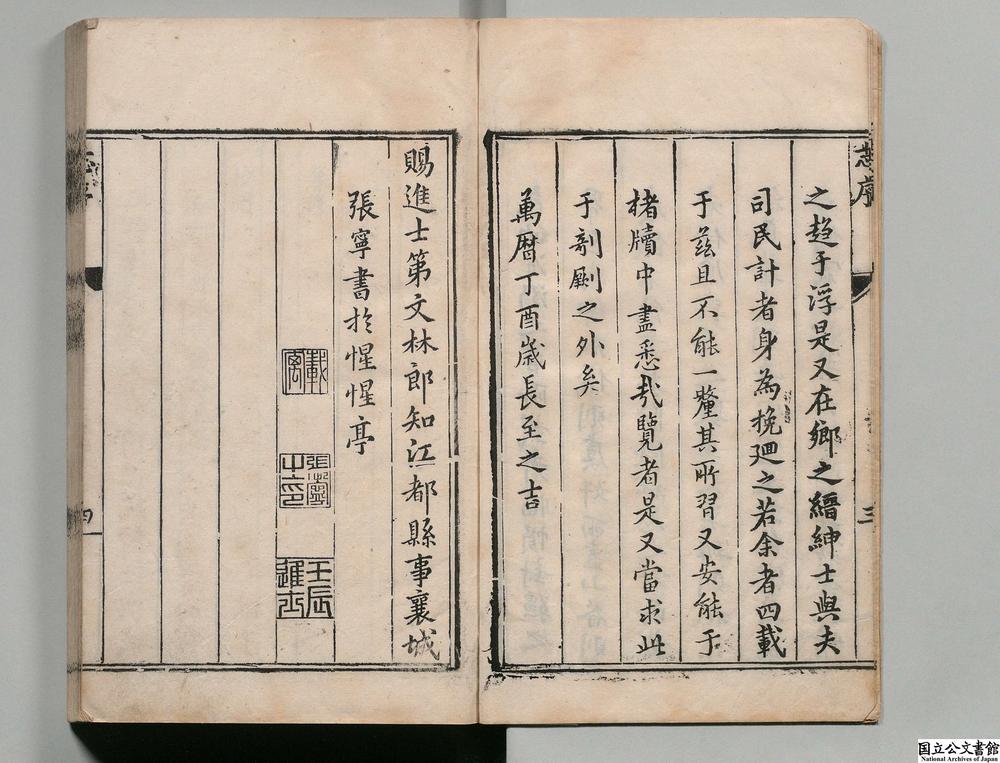 志序
三
之趋于浮是又在鄉之縉紳士與夫
司民計者身為挽廻之若余者四載
于茲且不能一釐其所習又安能于
楮牘中盡悉哉覽者是又當求此
于剞劂之外矣
萬曆丁酉歲長至之吉
賜進士第文林郎知江都縣事襄城
張寧書於惺惺亭
張寧之印
壬辰進士
四
国立公文書館
National Archives of Japan